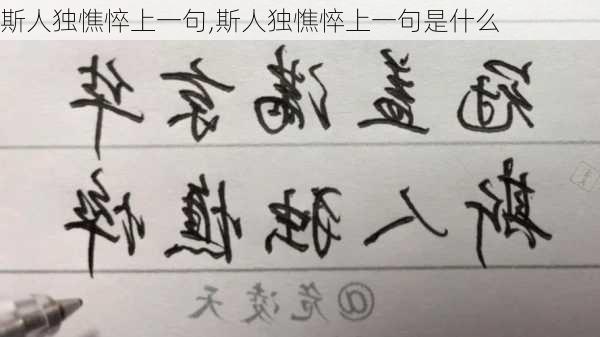 斯人独憔悴上一句,斯人独憔悴上一句是什么
冠盖满京华
斯人独憔悴
@危凌天